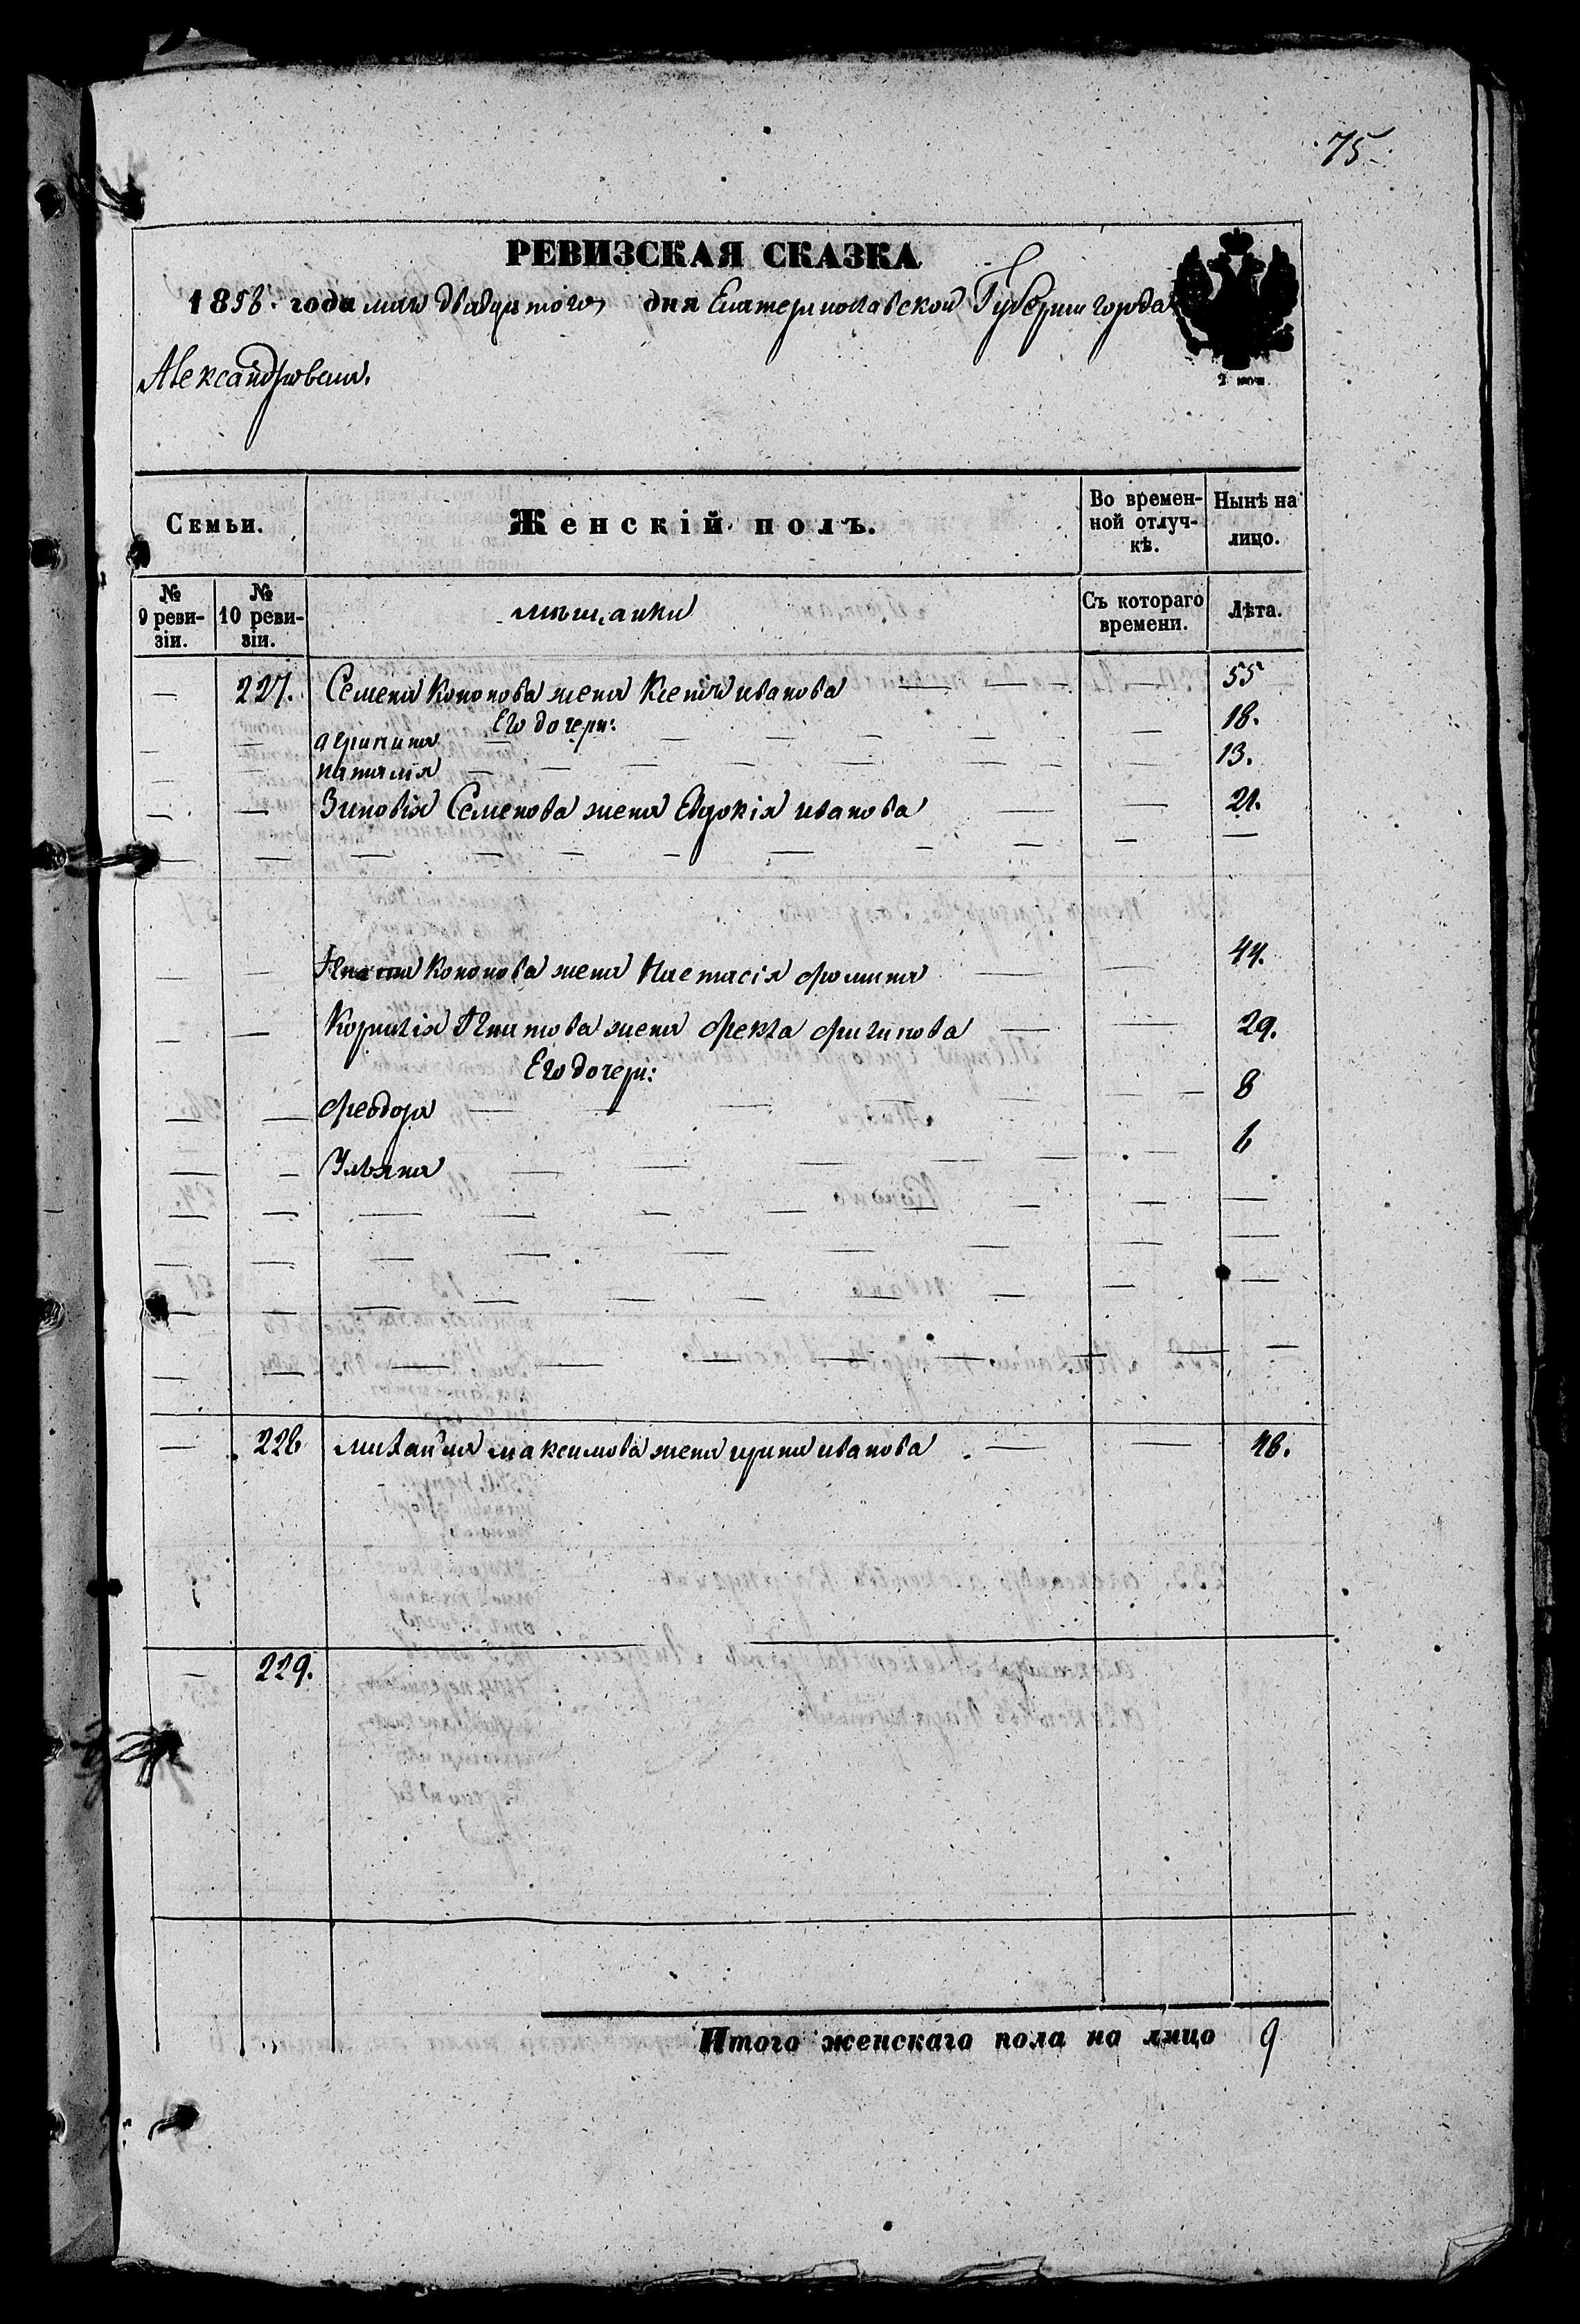 75
РЕВИЗСКАЯ СКАЗКА
1858 года мая двадцатого дня Екатеринославской Губернии города
Александровска.
2 коп.
Семьи.
Женскій полъ.
Во времен-
ной отлуч-
кѣ.
Нынѣ на
лицо.
№
9 реви-
зіи.
№
10 реви-
зіи.
мѣщанки
Съ котораго
времени.
Лѣта.
— 227. Семена Кононова жена Ксенія иванова — — 55
Его дочери:
— — агрипина — — — 18.
— — наталія — — — 13.
— — Зиновія Семенова жена Евдокія иванова — — 21.
— — Кононова жена Настасія фомина — — 44.
— — Корнилія жена Фекла — — 29.
Его дочери:
— — Феодора — — — 8
— — Ульяна — — — 6
— 228 михаила максимова жена ирина иванова — — 48.
— 229.
Итого женскаго пола на лицо 9